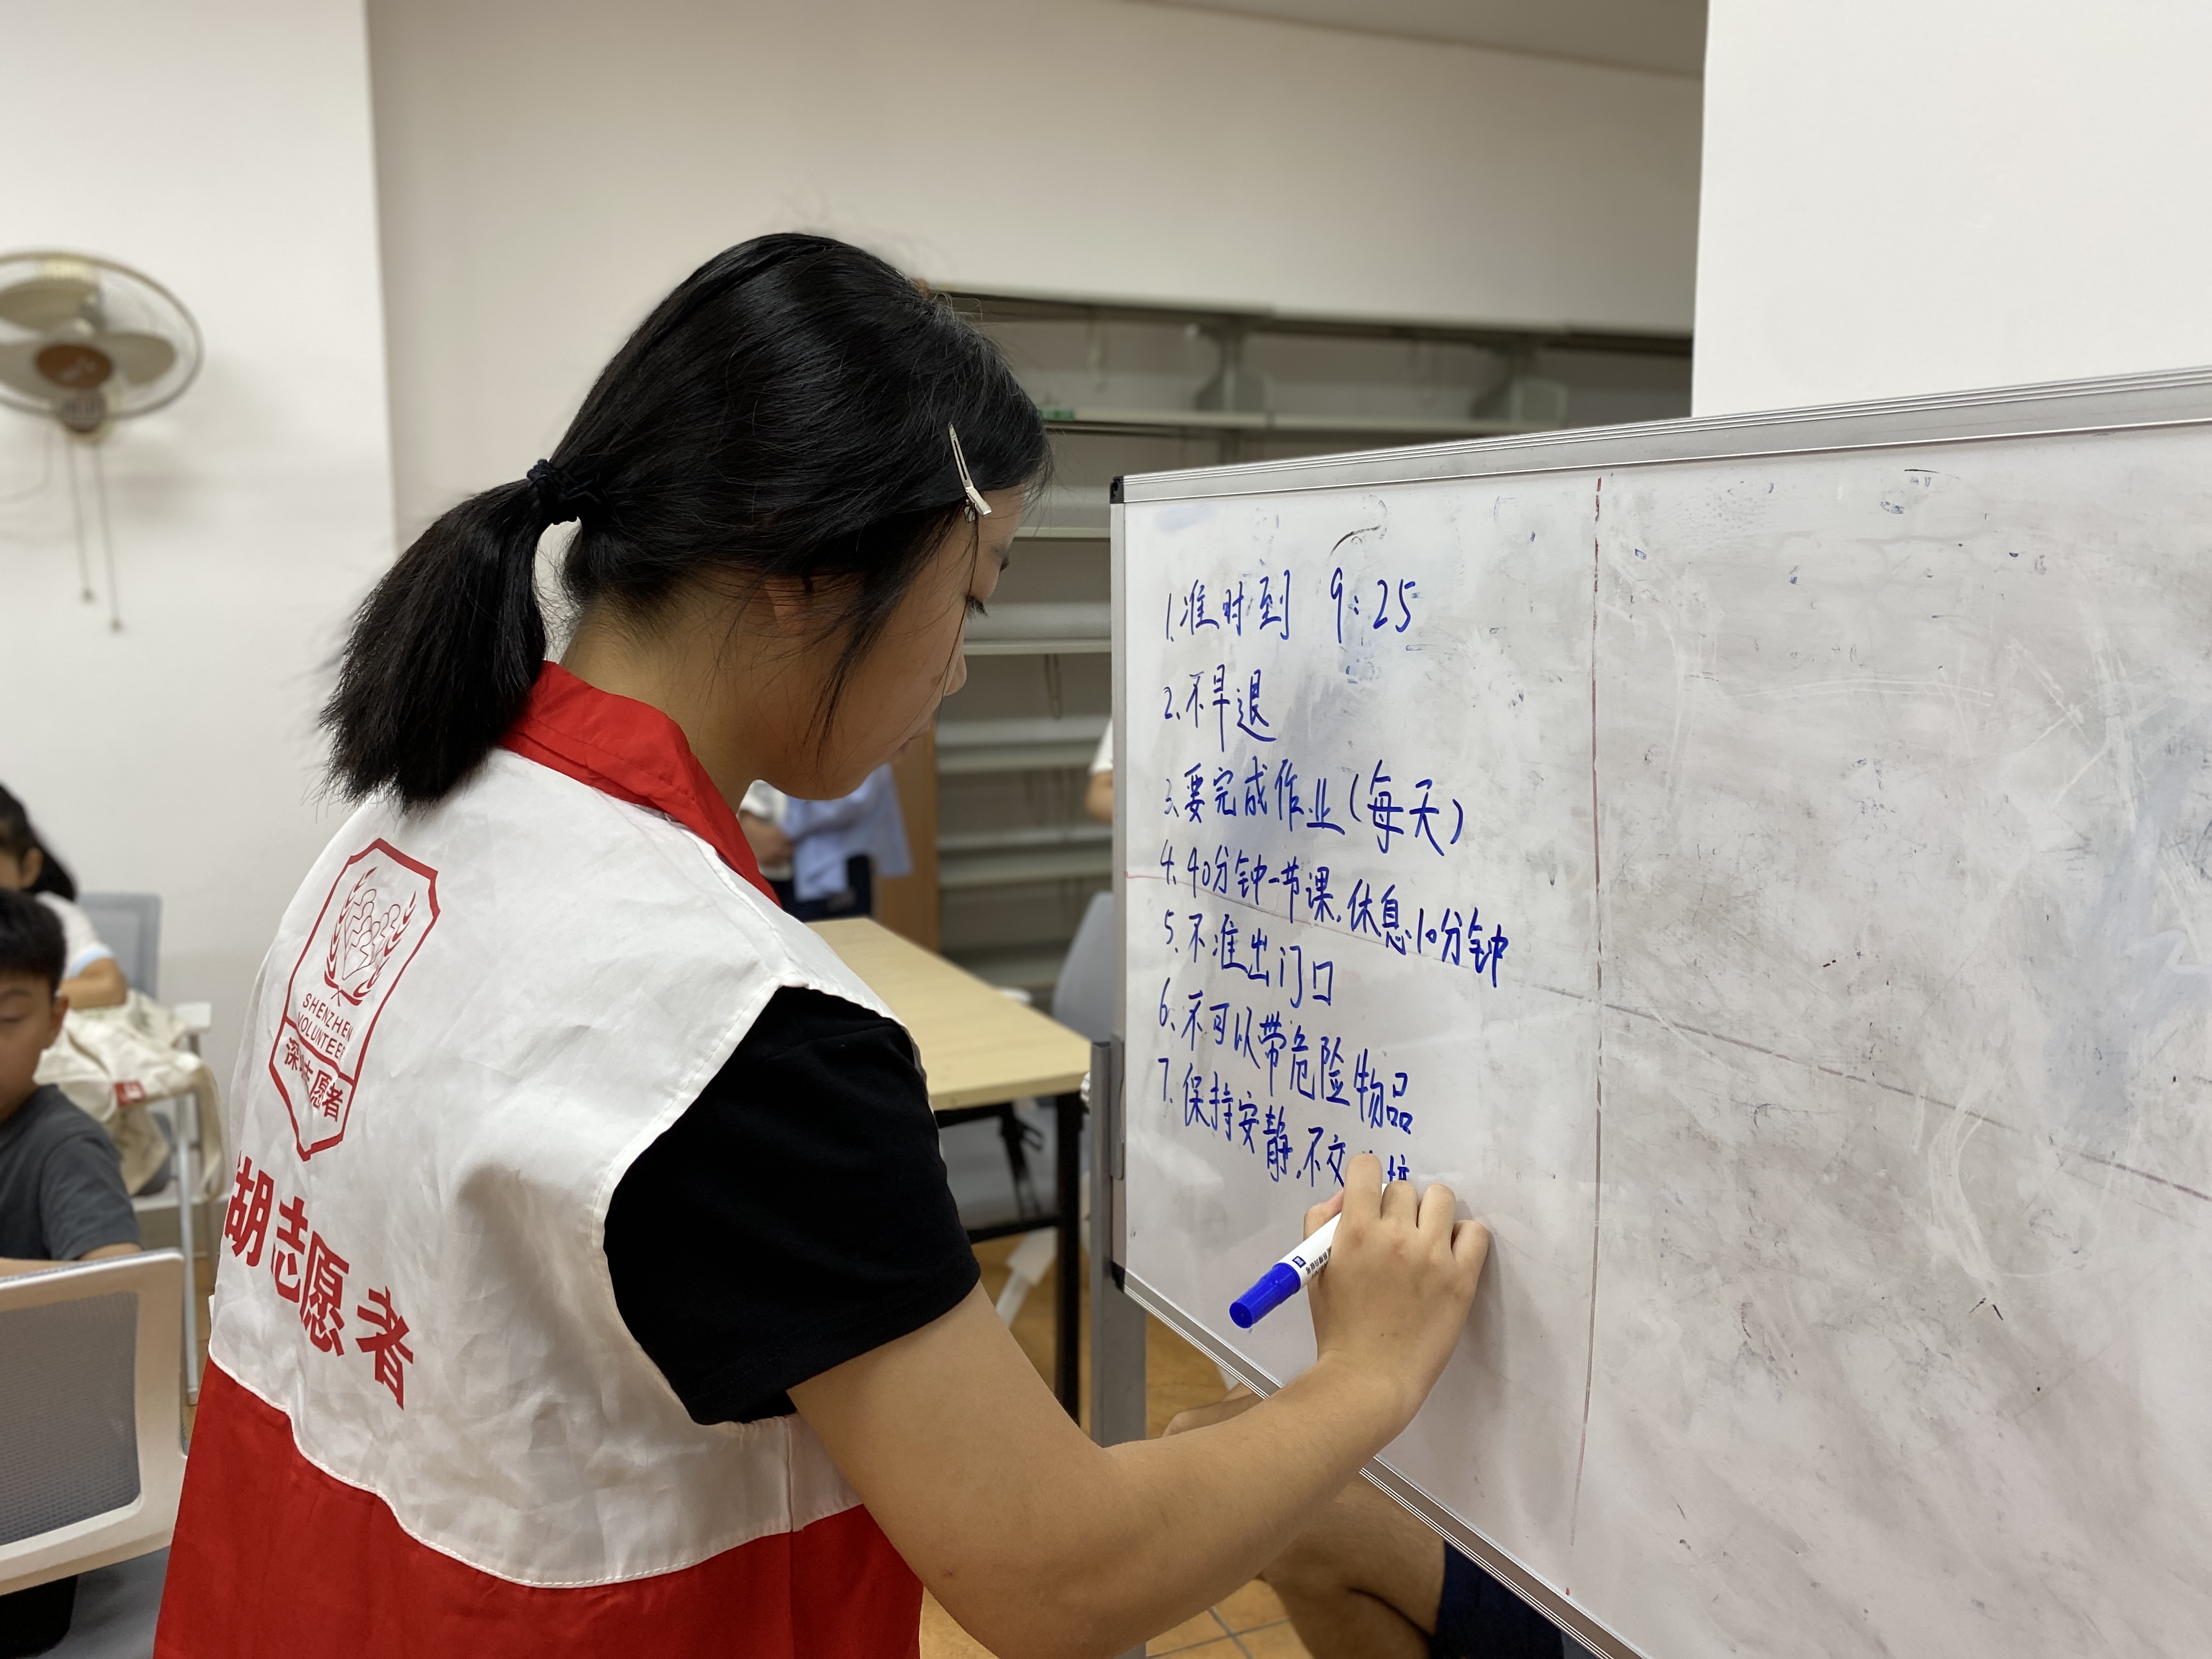 1.准时到 9:25
2.不早退
3.要完成作业(每天)
4.40分钟一节课.休息10分钟
5.不准出门口
6.不可以带危险物品
7.保持安静.不交
SHENZHEN
VOLUNTEER
深圳志愿者
湖志愿者